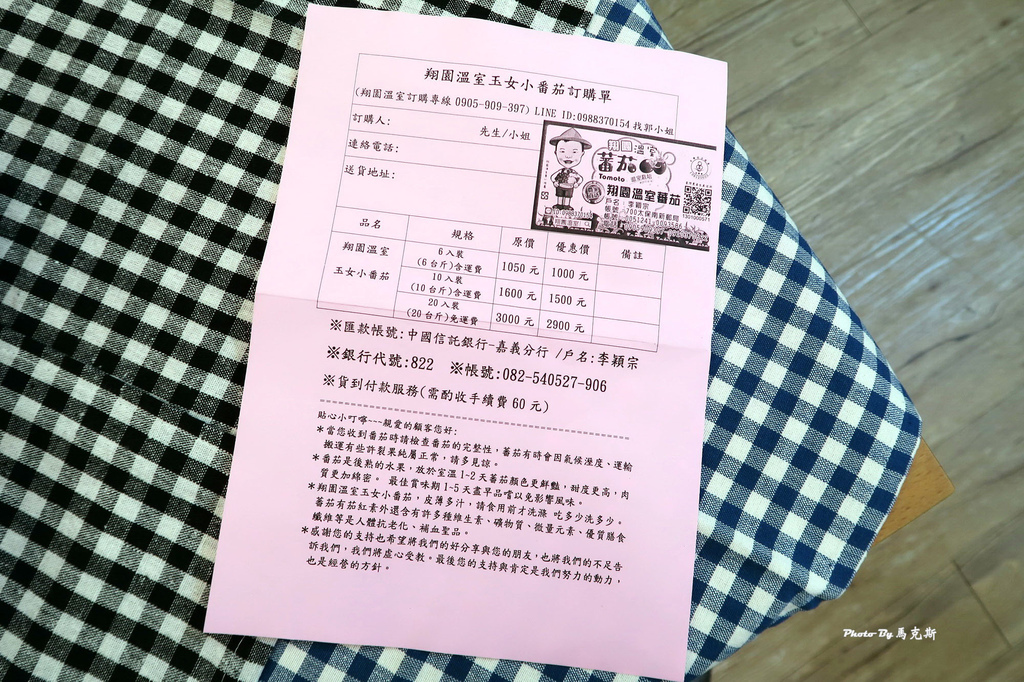 翔園溫室玉女小番茄訂購單
(翔園溫室訂購專線 0905-909-397) LINE ID:0988370154 找郭小姐
訂購人: 先生/小姐
連絡電話:
送貨地址:
翔園溫室
蕃茄
Tomoto
翔園溫室蕃茄
品名 規格 原價 優惠價 備註
翔園溫室
玉女小番茄
6入裝
(6台斤)含運費 1050元 1000元
10入裝
(10台斤)含運費 1600元 1500元
20入裝
(20台斤)免運費 3000元 2900元
※匯款帳號:中國信託銀行-嘉義分行 /戶名:李穎宗
※銀行代號:822 ※帳號:082-540527-906
※貨到付款服務(需酌收手續費60元)
貼心小叮嚀~~~親愛的顧客您好:
*當您收到番茄時請檢查番茄的完整性,蕃茄有時會因氣候溼度、運輸
搬運有些許裂果純屬正常,請多見諒。
*番茄是後熟的水果,放於室溫1-2天蕃茄顏色更鮮豔,甜度更高,肉
質更加綿密。 最佳賞味期1-5天盡早品嚐以免影響風味。
*翔園溫室玉女小番茄,皮薄多汁,請食用前才洗滌 吃多少洗多少。
蕃茄有茄紅素外還含有許多種維生素、礦物質、微量元素、優質膳食
纖維等是人體抗老化、補血聖品。
*感謝您的支持也希望將我們的好分享與您的朋友,也將我們的不足告
訴我們,我們將虛心受教。最後您的支持與肯定是我們努力的動力,
也是經營的方針。
Photo By 馬克斯